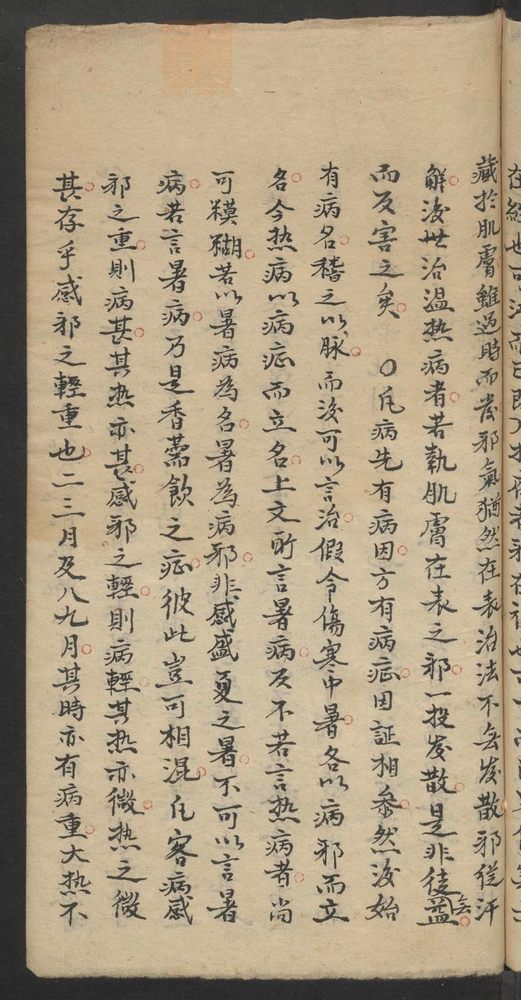 藏於肌膚雖過時而發邪氣猶然在表治法不無發散邪從汗
解後世治溫热病者若執肌膚在表之邪一投發散是非徒無益
而反害之矣〇凡病先有病因方有病症因証相参然後始
有病名稽之以脉而後可以言治假令傷寒中暑各以病邪而立
名今热病以病症而立名上文所言暑病反不若言热病者尚
可糢糊若以暑病為名暑為病邪非感盛夏之暑不可以言暑
病若言暑病乃是香薷飲之症彼此豈可相混凡客病感
邪之重則病甚其热亦甚感邪之輕則病輕其热亦微热之微
甚存乎感邪之輕重也二三月及八九月其時亦有病重大热不